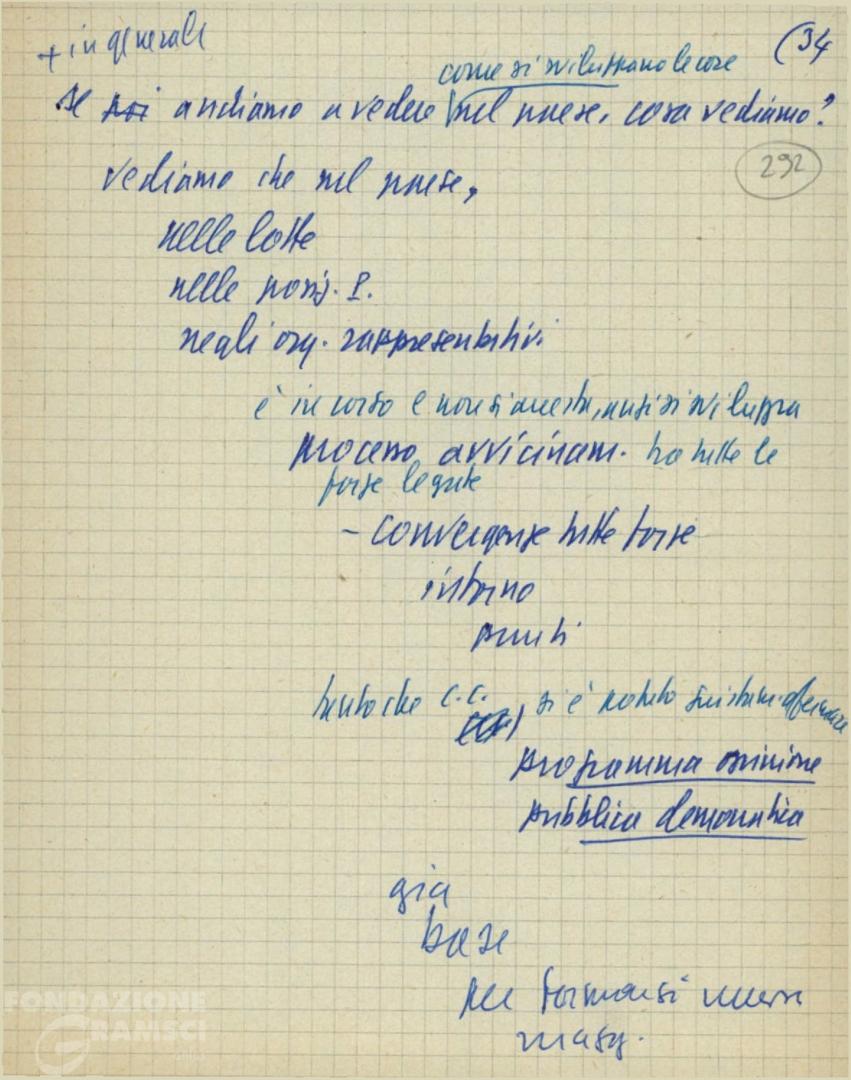 (34
+ in generale
come si sviluppano le cose
se noi andiamo a vedere nel paese, cosa vediamo?
292
vediamo che nel paese,
nelle lotte
nelle posiz. P.
negli org. rappresentativi
è in corso e non si arresta, anzi si sviluppa
processo avvicinam. tra tutte le
forze legate
- Convergenze tutte forze
intorno
punti
tanto che C.C. si è potuto affermare
programma opinione
pubblica democratica
già
base
per formarsi nuova
magg.
FONDAZIONE
GRAMSCI